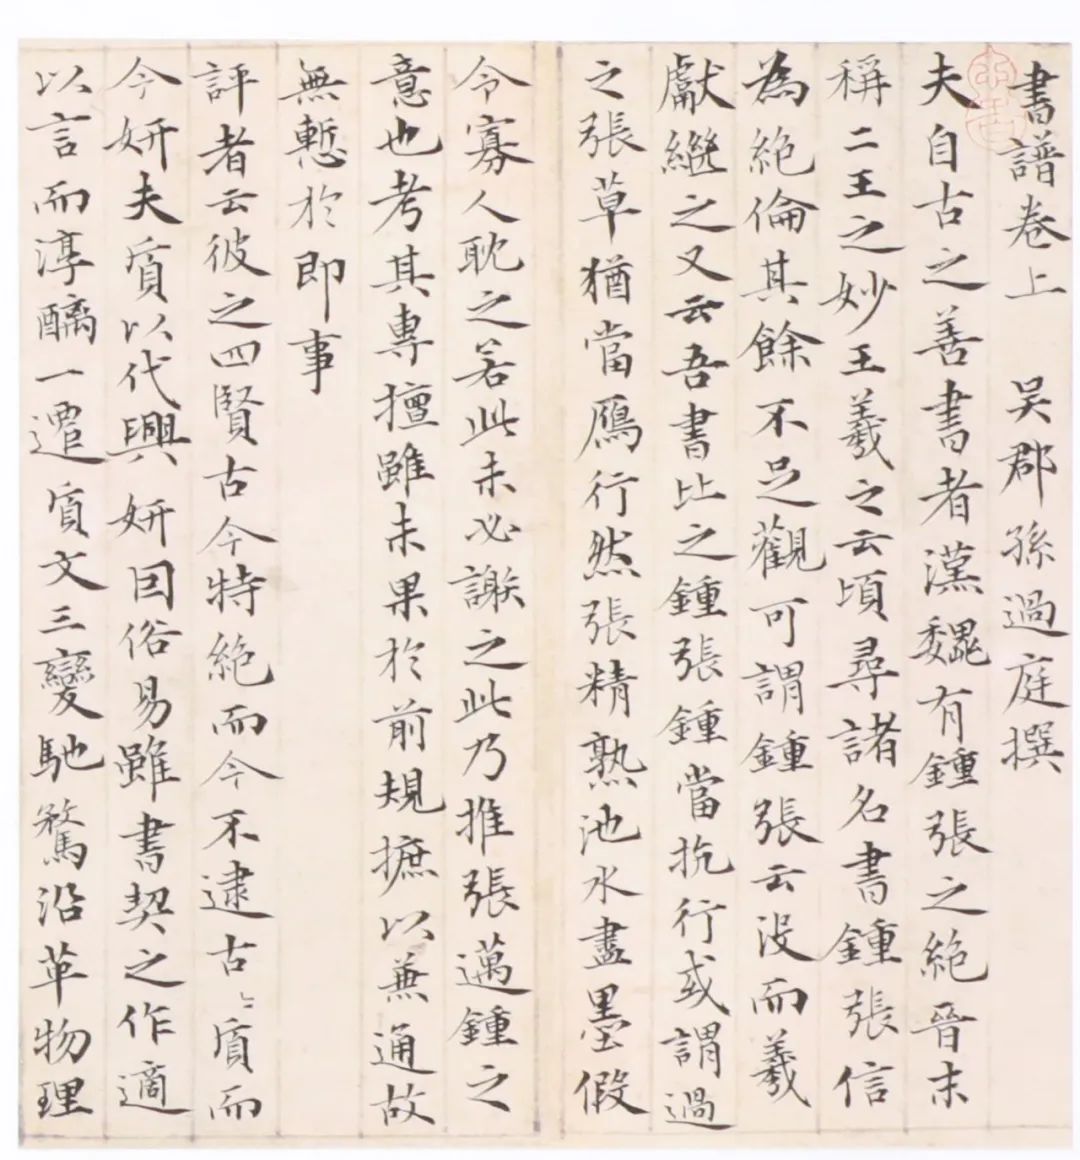 書譜卷上 吴郡孫過庭撰
夫自古之善書者漢魏有鍾張之絶晉末
稱二王之妙王羲之云頃尋諸名書鍾張信
為絶倫其餘不足觀可謂鍾張云没而羲
獻繼之又云吾書比之鍾張鍾當抗行或謂過
之張草猶當鴈行然張精熟池水盡墨假
令寡人耽之若此未必謝之此乃推張邁鍾之
意也考其專擅雖未果於前規摭以兼通故
無慙於即事
評者云彼之四賢古今特絶而今不逮古〻質而
今妍夫質以代興妍因俗易雖書契之作適
以言而淳醨一遷質文三變馳騖沿革物理